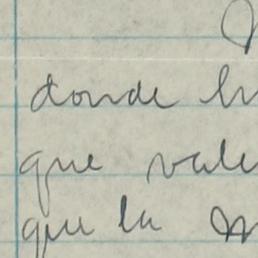 donde
que vale
que la